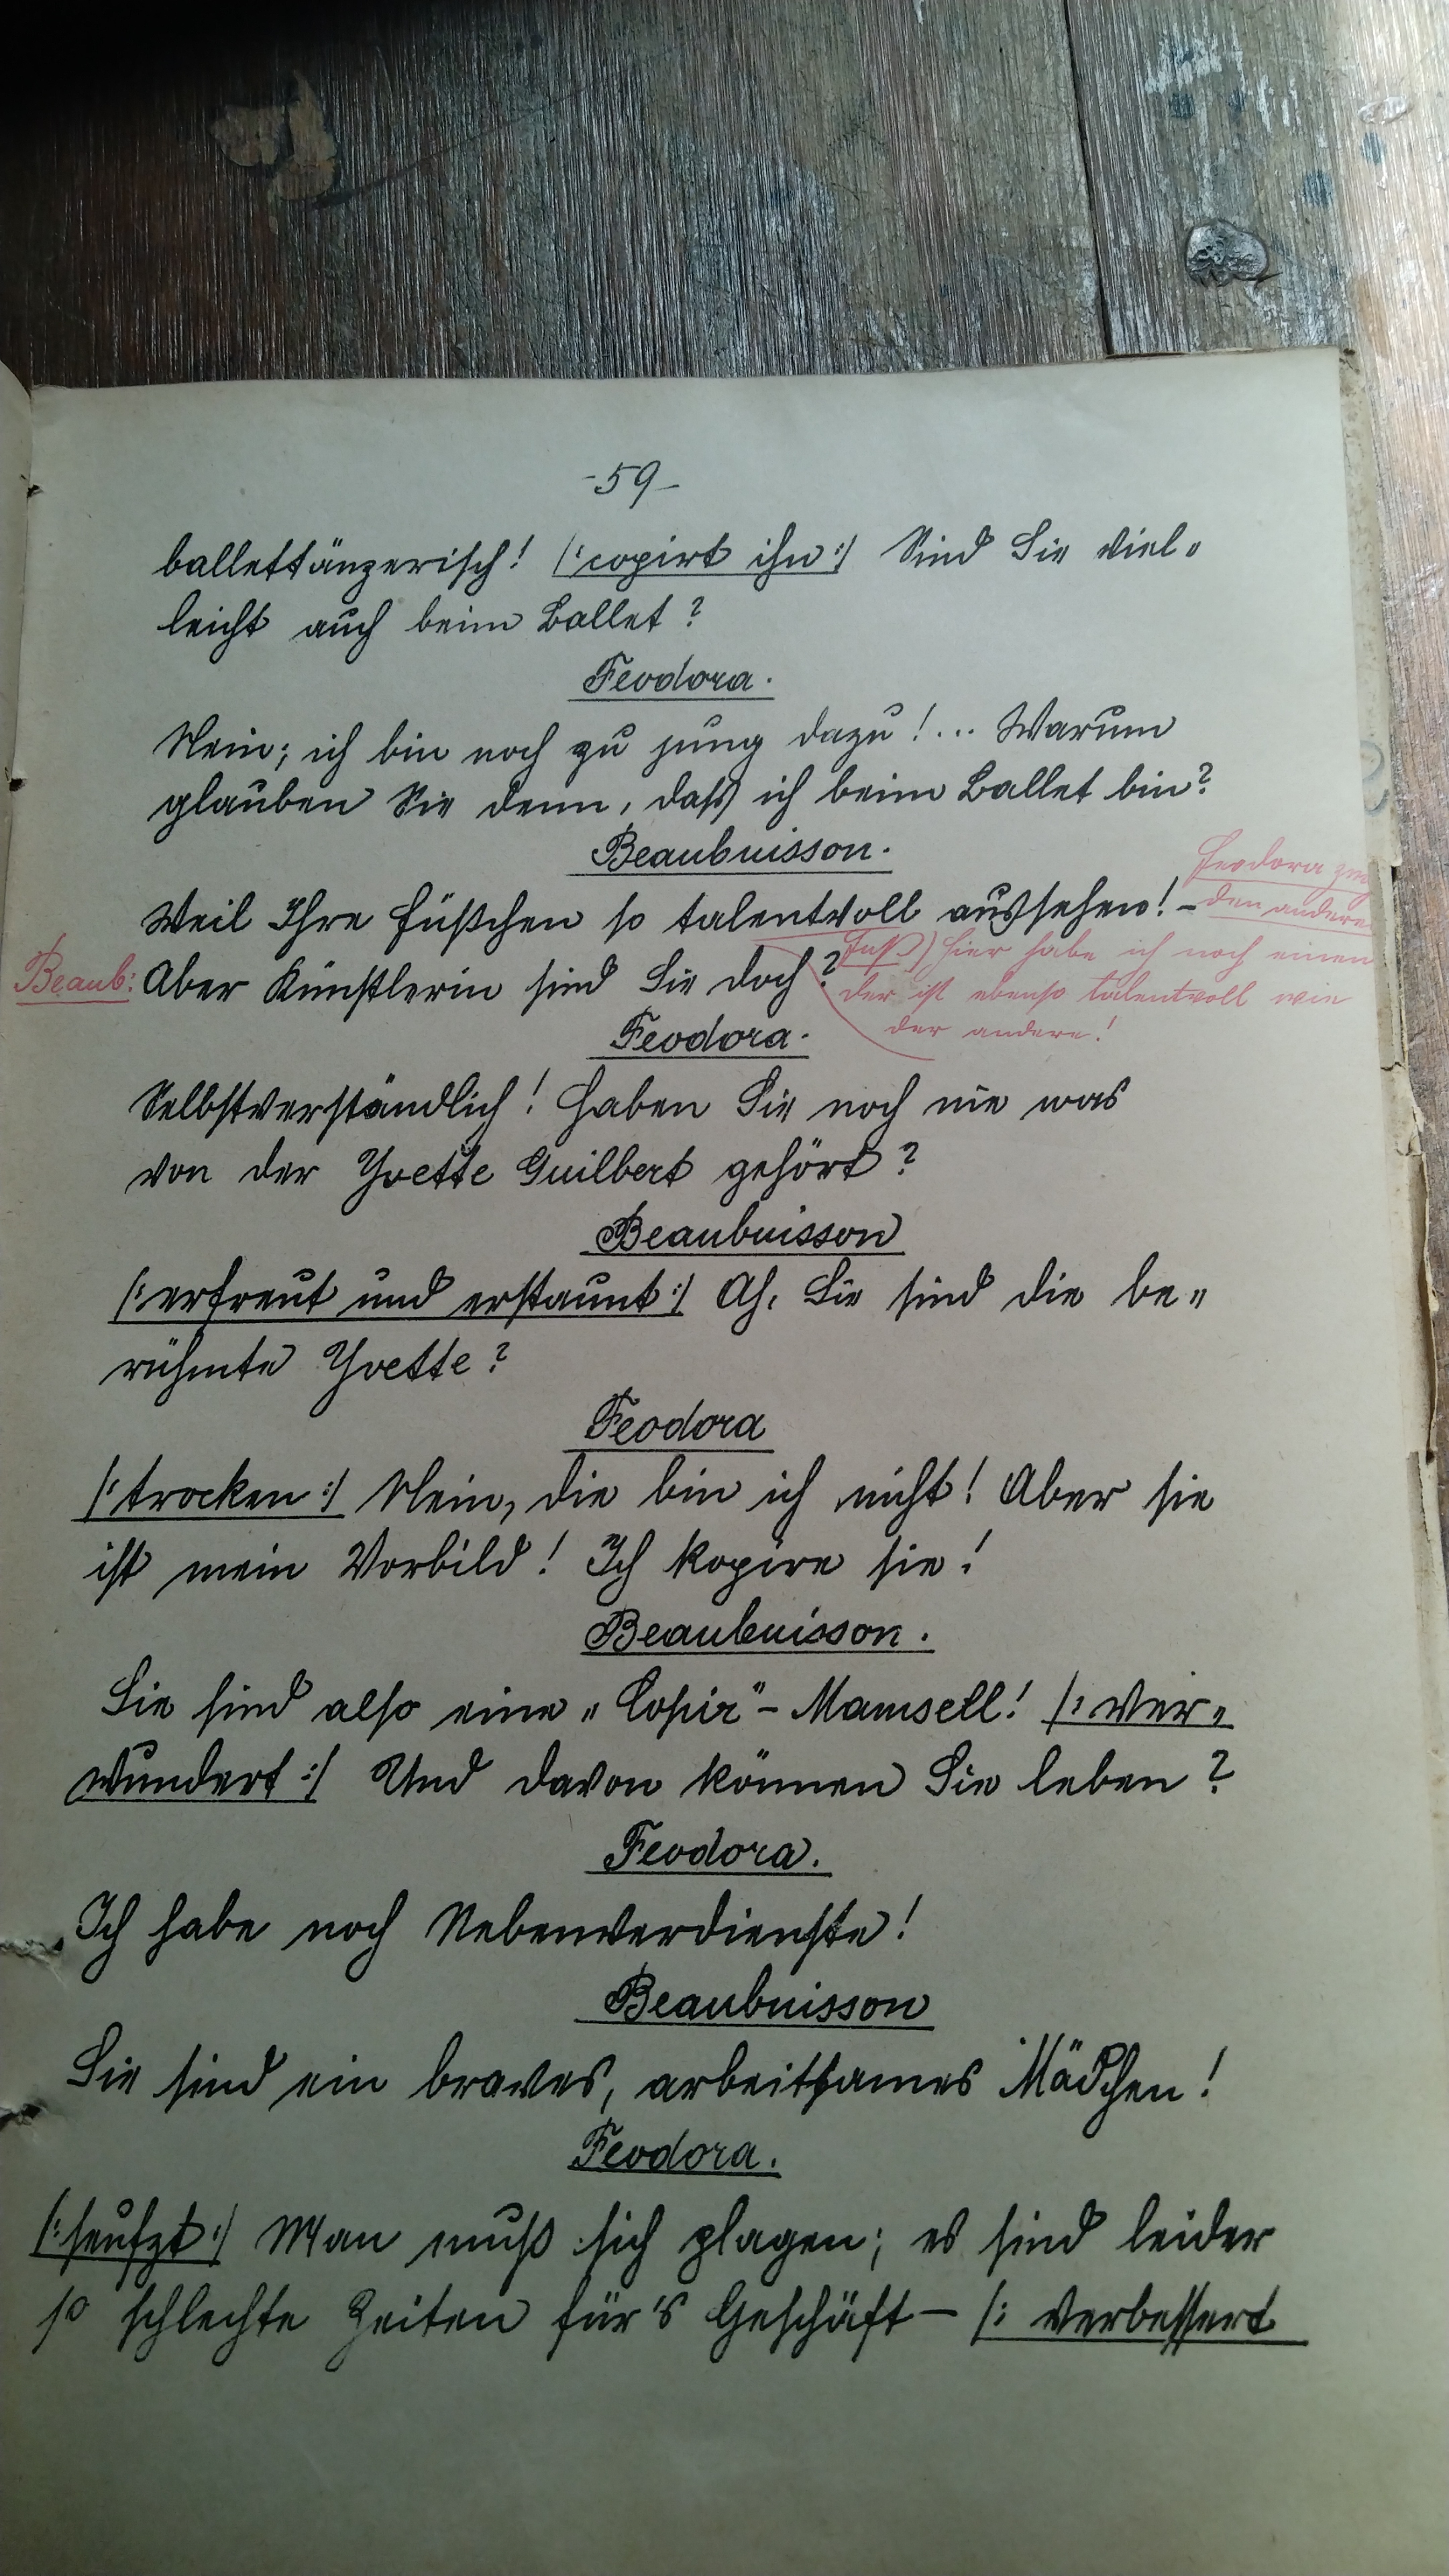 -59-
ballettänzerisch! /:copirt ihn:/ Sind Sie viel-
leicht auch beim Ballet?
Feodora.
Nein; ich bin noch zu jung dazu!... Warum
glauben Sie denn, daß ich beim Ballet bin?
Beaubuisson.
Weil Ihre Füßchen so talentvoll aussehen! -
Feodora
den andere
Fuß) hier habe ich noch einen
der ist ebenso talentvoll wie
der andere!
Beaub: Aber Künstlerin sind Sie doch?
Feodora.
Selbstverständlich! Haben Sie noch nie was
von der Yvette Guilbert gehört?
Beaubuisson
/:erfreut und erstaunt:/ Ah, Sie sind die be-
rühmte Yvette?
Feodora
/:trocken:/ Nein, die bin ich nicht! Aber sie
ist mein Vorbild! Ich kopire sie!
Beaubuisson.
Sie sind also eine „Copir"- Mamsell! /:ver-
wundert:/ Und davon können Sie leben?
Feodora.
Ich habe noch Nebenverdienste!
Beaubuisson
Sie sind ein braves, arbeitsames Mädchen!
Feodora.
/:seufzt:/ Man muß sich plagen; es sind leider
so schlechte Zeiten für's Geschäft - /: verbessert